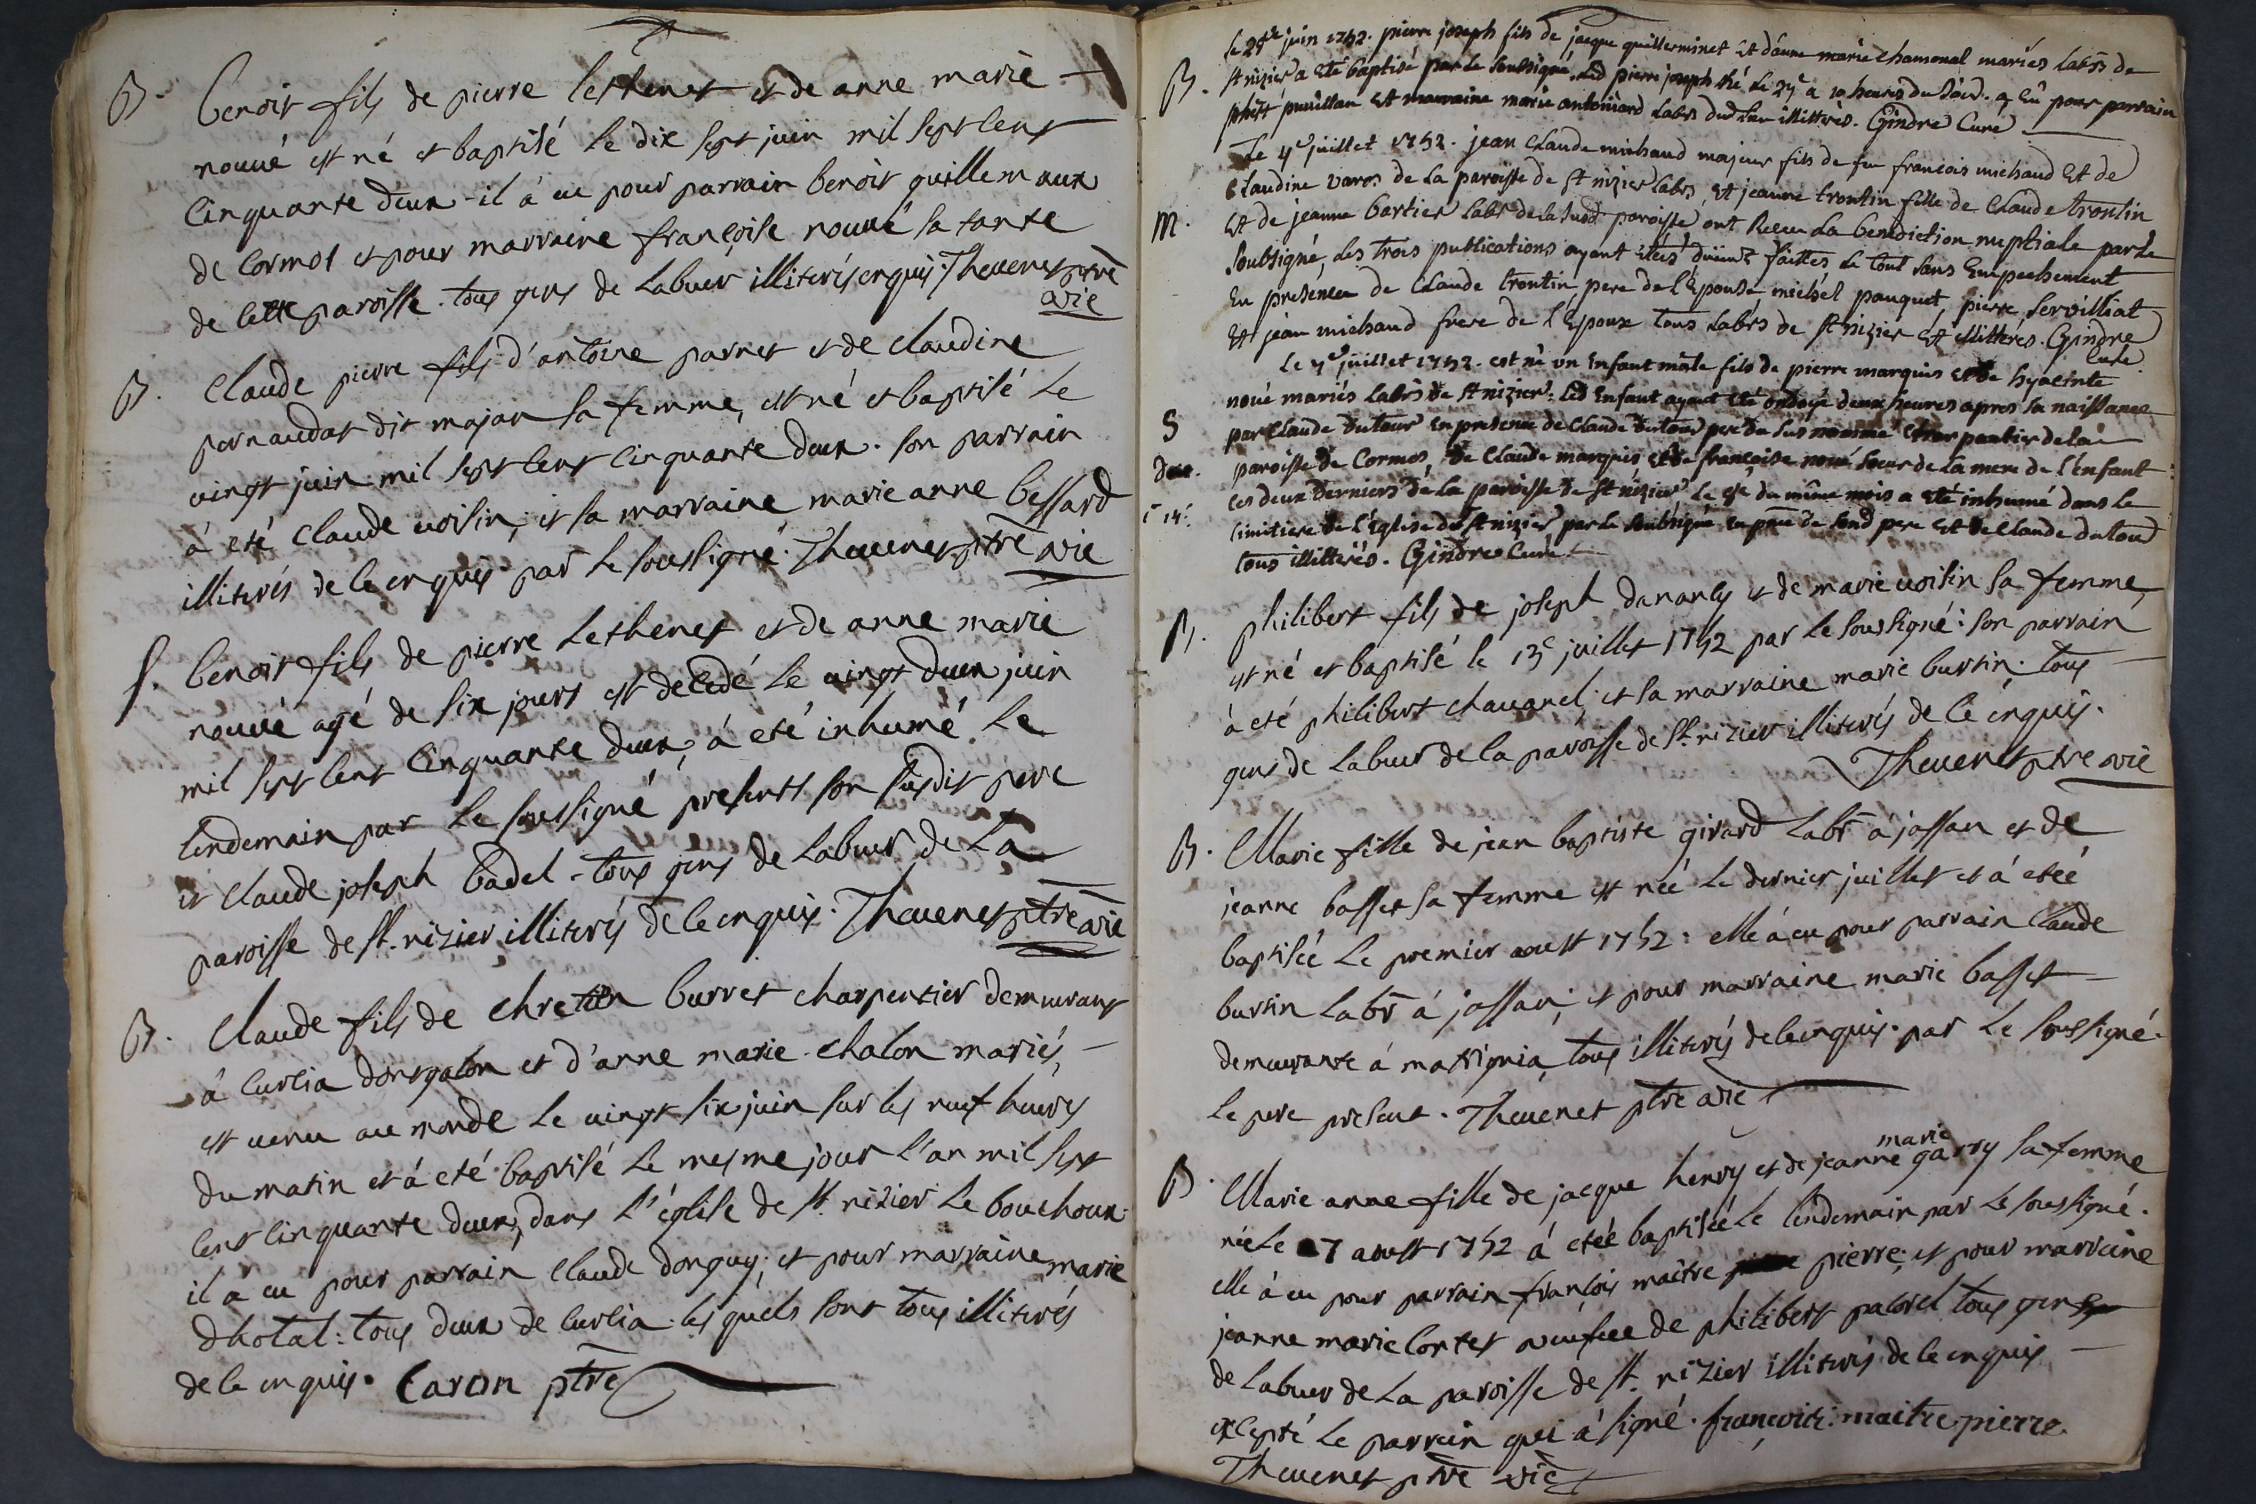 B. benoit fils de pierre lethenet et de anne marie
nouué est né et baptisé le dix sept juin mil sept cent
cinquante deux - il á eu pour parrain benoit guillemaux
de cormos et pour marraine françoise nouué sa tante
de cette paroisse. tous gens de labeur illiterés enquis. Theuenet ptre
vic
B. Claude pierre fils d'antoine parnet et de claudine
pernaudat dit majan sa femme, est né et baptisé le
vingt juin mil sept cent cinquante deux. son parrain
á eté claude uoisin, et sa marraine marie anne bessard
illiterés de ce enquis par le soussigné. Theuenet ptre vic
S. benoit fils de pierre lethenet et de anne marie
nouué agé de six jours est decedé le vingt deux juin
mil sept cent cinquante deux, á eté inhumé le
lendemain par le soussigné presents son susdit pere
et claude joseph badel - tous gens de labeur de la
paroisse de st. nizier illiterés de ce enquis. Theuenet ptre vic
B. Claude fils de chretien burret charpentier demeurant
á curlia dont galon et d'anne marie chalon mariés,
est uenu au monde le uingt six juin sur les neuf heures
du matin et á eté baptisé le mesme jour l'an mil sept
cent cinquante deux, dans l'église de st. nizier le bouchoux
il á eu pour parrain claude donguy, et pour marraine marie
dhotal: tous deux de curlia lesquels sont tous illiterés
de ce enquis. Caron ptre
le 28e juin 1752. pierre joseph fils de jacque guillerminet et d'anne marie chamonal mariés labrs de
B. st nizier a eté baptisé par le soussigné. led pierre joseph né le 27e a 10 heures du soir. a eû pour parrain
pierre et marraine marie antoinard labrs dud lieu illitterés. Gindre Curé
Le 4e juillet 1752. jean claude michaud majeur fils de fu francois michaud et de
claudine varos de la paroisse de st nizier labrs, et jeanne trontin fille de claude trontin
M. et de jeanne bartier labr de la sud paroisse, ont Receu la benediction nuptiale par le
soubsigné, les trois publications ayant étées duüent faittes le tout sans Empechement
En presence de claude trontin pere de l'Epouse, michel pauquet, pierre servilliat
et jean michaud frere de l'Epoux tous labrs de st nizier et illitterés. Gindre
Curé
Le 7e juillet 1752. est né un Enfant mâle fils de pierre marquis et de hyacinte
noüé mariés labrs de st nizier: led Enfant ayant été ondoyé deux heures apres sa naissance
S par claude dutour En presence de claude dutour pere du susnommé charpantier de la
paroisse de cormos, de claude marquis et de françoise noüé soeur de la mere de l'enfant
ces deux derniers de la paroisse de st nizier le 8e du même mois a eté inhumé dans le
cimitiere de l'Eglise de st nizier par le soubsigné En pnce de sond pere et de claude dutour
tous illitterés. Gindre Curé
B. philibert fils de joseph dananly et de marie uoisin sa femme,
est né et baptisé le 13e juillet 1752 par le soussigné: son parrain
á eté philibert chauanel; et sa marraine marie burtin; tous
gens de labeur de la paroisse de st. nizier illiterés de ce enquis.
Theuenet ptre vic
B. Marie fille de jean baptiste girard labr á jassan et de
jeanne basset sa femme est née le dernier juillet et á etée
baptisée le premier aoust 1752: elle á eu pour parrain claude
burtin labr á jassan; et pour marraine marie basset
demeurante á mattignia, tous illiterés de ce enquis par le soussigné.
le pere present. Theuenet ptre vic
marie
B. Marie anne fille de jacque henry et de jeanne garry sa femme
née le 7 aoust 1752 á etée baptisée le lendemain par le soussigné.
elle á eu pour parrain françois maître pierre; et pour marraine
jeanne marie cortet veufue de philibert pacorel tous gens
de labeur de la paroisse de st. nizier illiterés de ce enquis
excepté le parrain qui á signé. françoite maitre pierre
Theuenet ptre vic